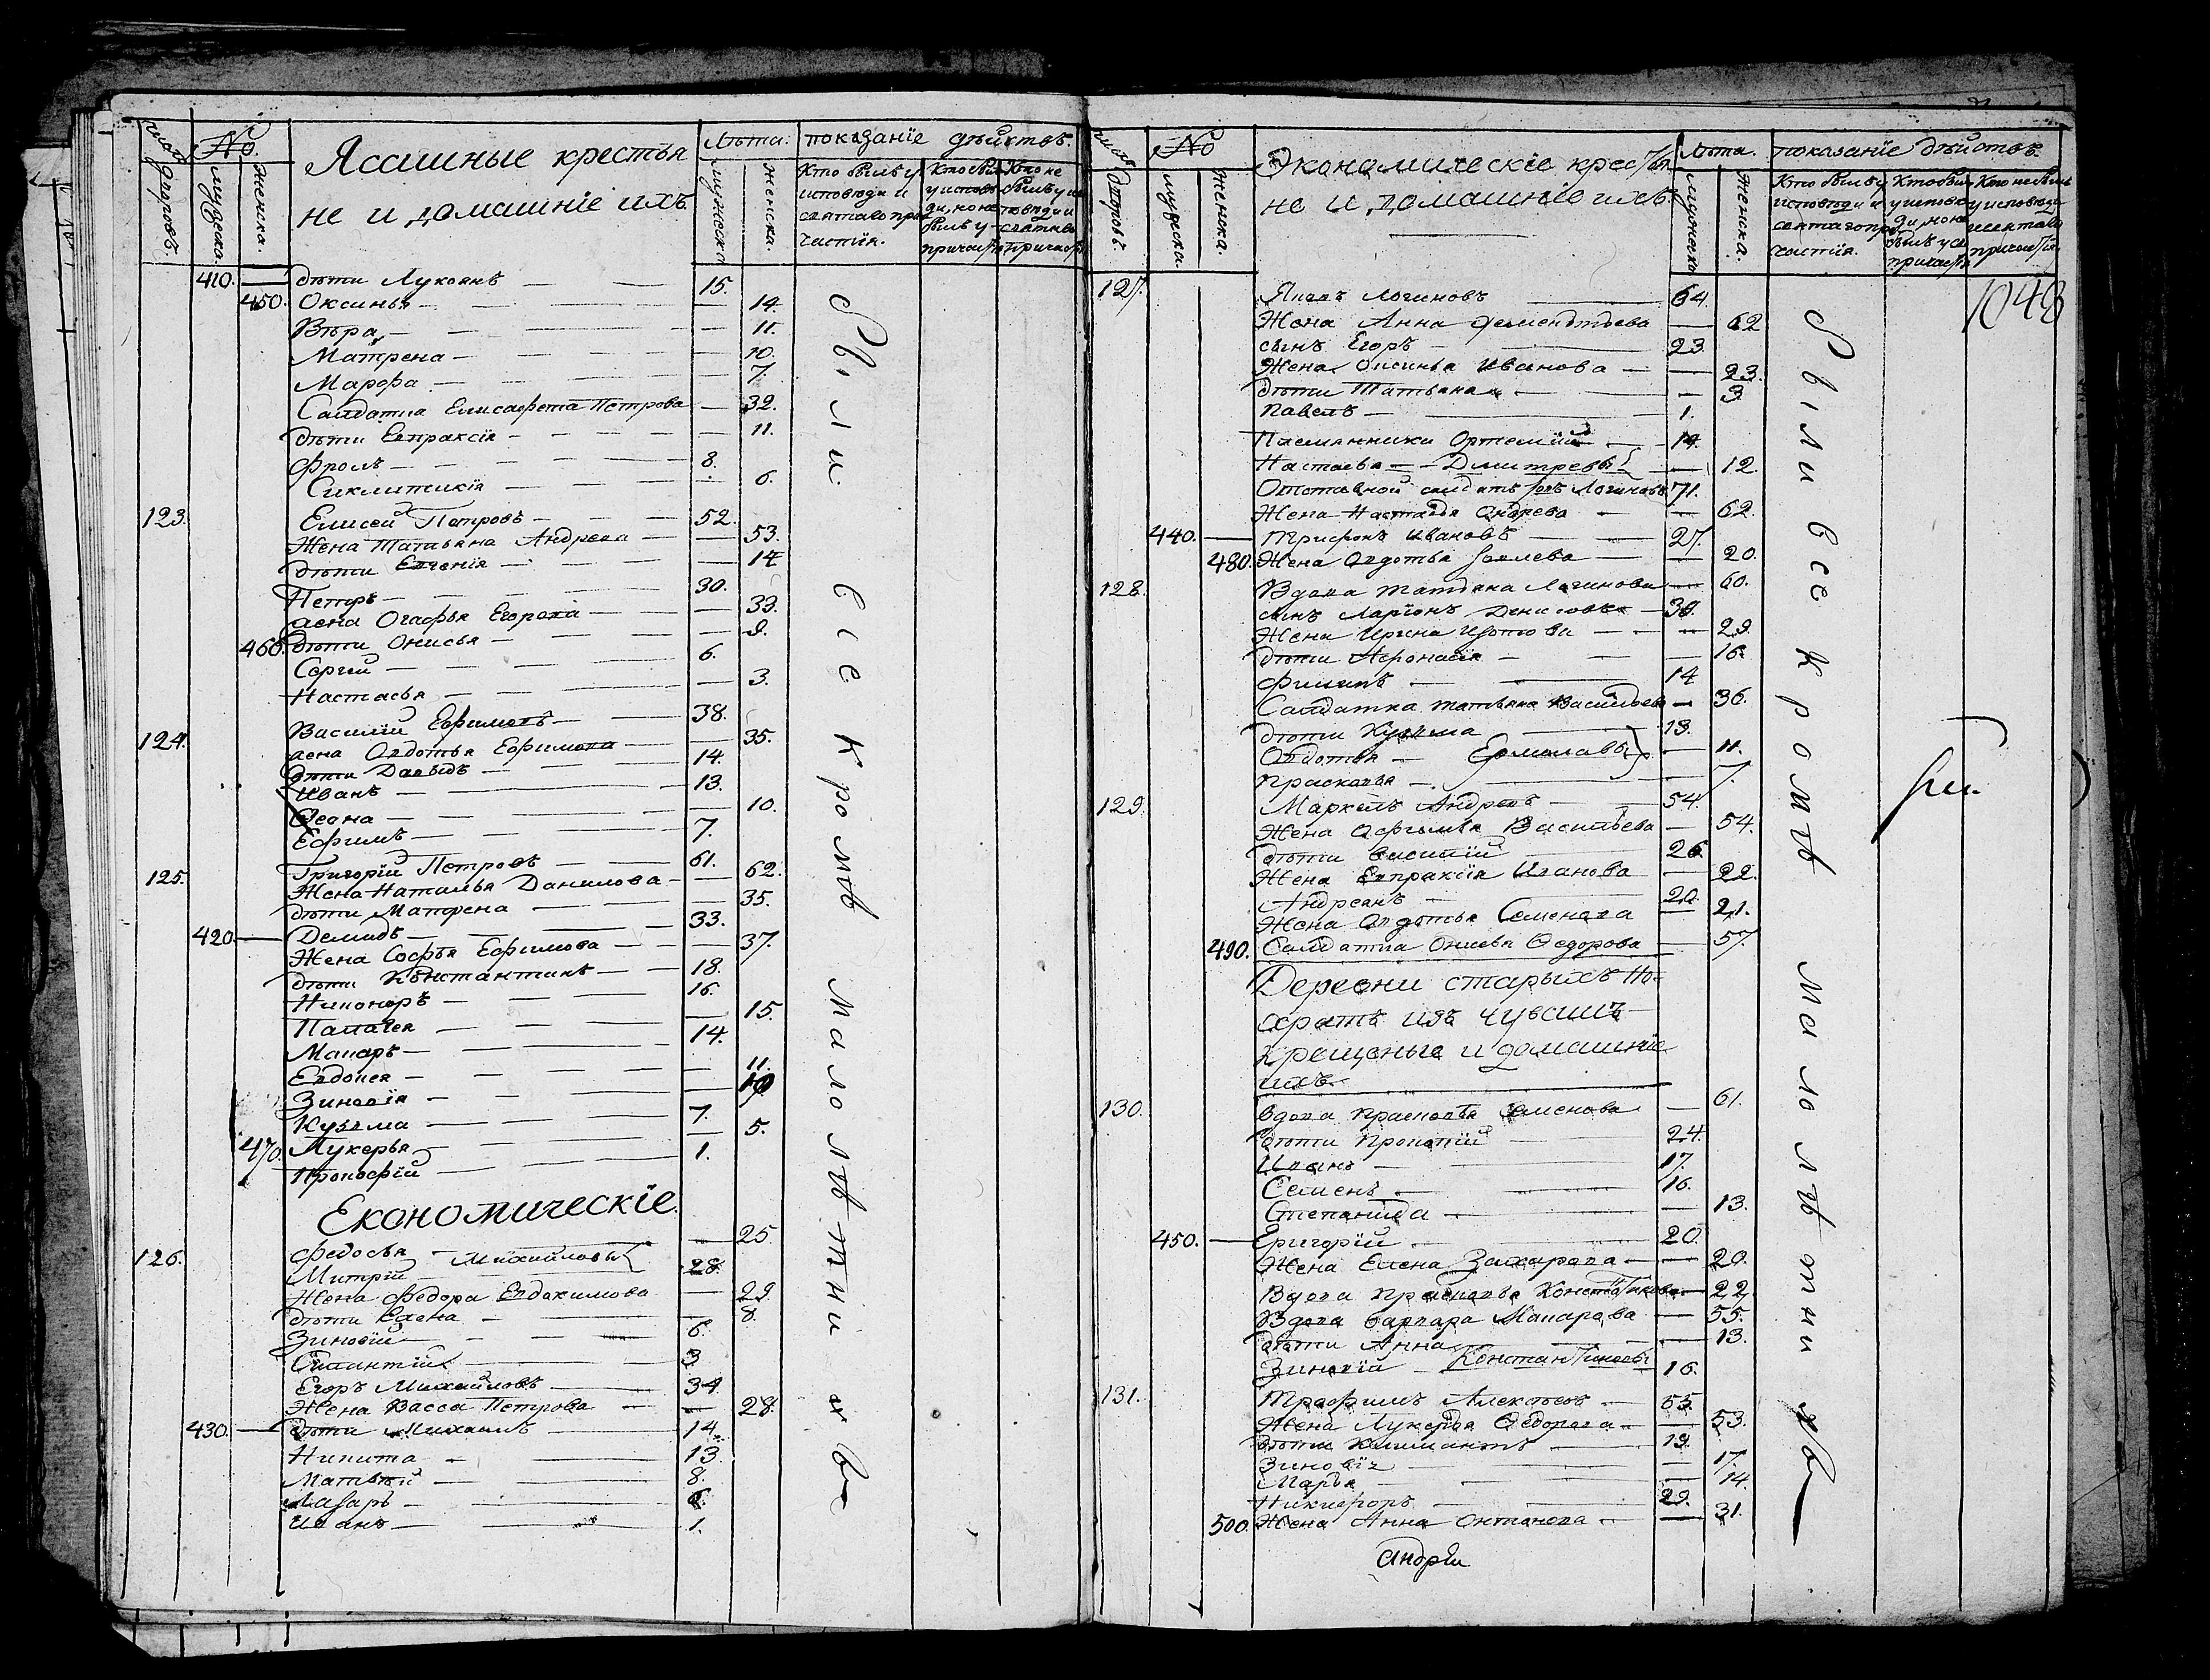 число дворовъ.
№
мужеска.
женска.
Ясашные крестья
не и домашніе ихъ.
Лѣта.
мужеска
женска.
показаніе дѣйствъ.
Кто былъ у исповѣди и святаго причастія.
Кто был у исповеди, но не былъ у причастія
Кто не былъ у исповѣди и святаго причастія
410. — дѣти Лукоянъ — 15.
450. Оксинья — 14.
Вѣра — 11.
Матрена — 10.
Марфа — 7.
Салдатка Елисафета Петрова — 32.
дѣти Евпраксія — 11.
Фролъ — 8.
Сиклитикія — 6.
123. Елисей Петровъ — 52.
Жена Татьяна Андрева — 53.
дѣти Евгенія — 14
Петръ — 30.
жена Огафья Егорова — 33.
460. дѣти Онисья — 9.
Сергій — 6.
Настасья — 3.
124. Василій Ефимовъ — 38.
жена Овдотья Ефимова — 35.
дѣти Давыдъ — 14.
Иванъ — 13.
Ѳеона — 10.
Ефимъ — 7.
125. Григорій Петровъ — 61.
Жена Наталья Данилова — 62.
дѣти Матрена — 35.
420. — Демидъ — 33.
Жена Софья Ефимова — 37.
дѣти Константинъ — 18.
Никоноръ — 16.
Палагея — 15.
Макаръ — 14.
Евдокея — 11.
Зиновія — 10
Кузьма — 7.
470. Лукерья — 5.
Прокофій — 1.
Економическіе.
126. Федосья — Михайловы — 25.
Митрій — 28.
Жена Федора Евдокимова — 29.
дѣти Елена — 8.
Зиновій — 6.
Силантій — 3
Егоръ Михайловъ — 34.
Жена Васса Петрова — 28.
430. — дѣти Михаилъ — 14.
Никита — 13.
Матвѣй — 8.
Лазарь — 6.
Иванъ — 1.
были все кромѣ малолѣтнихъ
число дворовъ.
№
мужеска.
женска.
Экономическіе крестья
не и домашніе ихъ.
Лѣта.
мужеска
женска.
показаніе дѣйствъ.
Кто былъ у исповѣди и святаго причастія.
Кто был у исповеди, но не былъ у причастія
Кто не былъ у исповѣди и святаго причастія
1048
127. Яковъ Логиновъ — 64.
Жена Анна Дементьева — 62
сынъ Егоръ — 23.
Жена Оксинья Иванова — 23.
дѣти Татьяна — 3.
Павелъ — 1.
Племянники Ортемій — 14.
Настасья — Дмитревы — 12.
Отставной салдатъ Логиновъ 71.
Жена Настасья Андрева — 62.
440. — Трифонъ Ивановъ — 27.
480. Жена Овдотья — 20.
128. Вдова Татьяна Логинова — 60.
сынъ Ларіонъ Денисовъ — 30.
Жена Ирина — 29.
дѣти Афонасія — 16.
Филипъ — 14
Салдатка Татьяна Васильева — 36.
дѣти Кузьма — 13.
Овдотья — Ермилавы — 11.
Прасковья — 7.
129. Маркелъ Андревъ — 54.
Жена Васильева — 54.
дѣти Василій — 26.
Жена Евпраксія Иванова — 22.
Андреянъ — 20.
Жена Овдотья Семенова — 21.
490. Салдатка Онисья Ѳедорова — 57.
Деревни старыхъ Но-
хратъ изъ чувашъ
крещеные и домашніе
ихъ.
130. Вдова Прасковья Семенова — 61.
дѣти Прокопій — 24.
Иванъ — 17.
Семенъ — 16.
Степанида — 13.
450. — Григорій — 20.
Жена Елена Захарова — 20.
Вдова Прасковья Константинова — 22.
Вдова Варвара Макарова — 55.
дѣти Анна — 13.
Зиновій — Константиновы 16.
131. Трофимъ Алексѣевъ — 55.
Жена Лукерья Ѳедорова — 53.
дѣти — 19.
Зиновія — 17.
Марья — 14.
Никифоръ — 29.
500. Жена Анна Онтонова — 31.
были все кромѣ малолѣтнихъ
Андрѣй